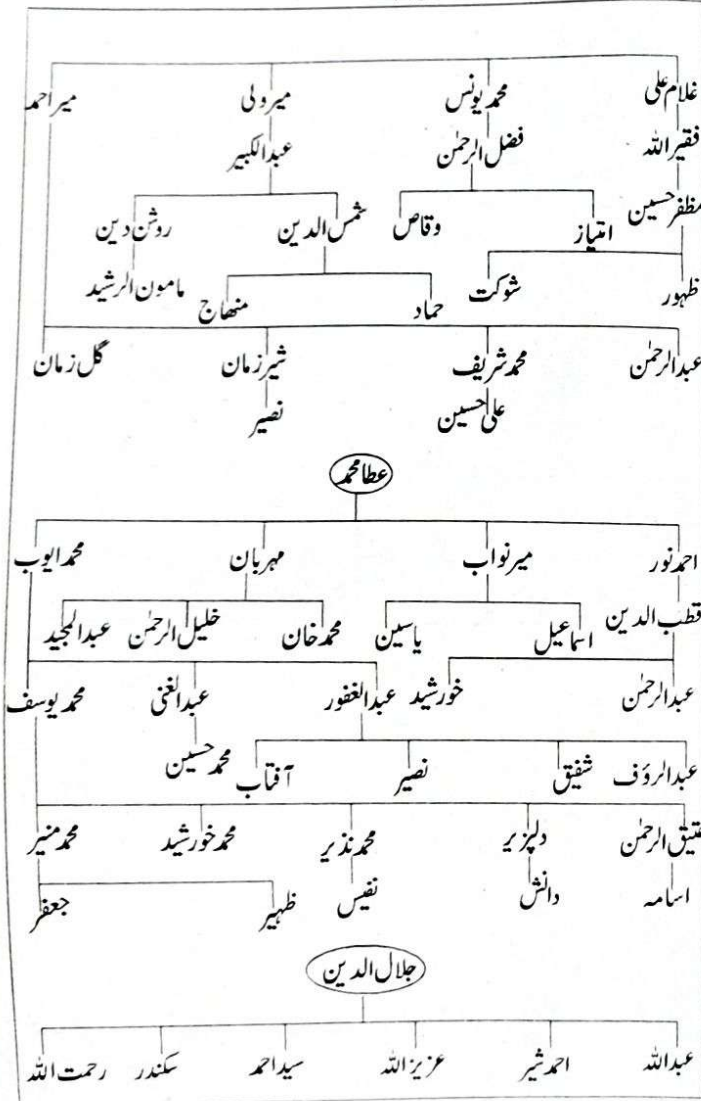 غلام علی محمد یونس میر ولی میر احمد
فقیر اللہ فضل الرحمٰن عبدالکبیر
مظفر حسین امتیاز وقاص شمس الدین روشن دین
ظہور شوکت حماد منھاج مامون الرشید
عبدالرحمٰن محمد شریف شیر زمان گل زمان
علی حسین نصیر
عطا محمد
احمد نور میر نواب مہربان محمد ایوب
قطب الدین اسماعیل یاسین محمد خان خلیل الرحمٰن عبدالمجید
عبدالرحمٰن خورشید عبدالغفور عبدالغنی محمد یوسف
عبدالرؤف شفیق نصیر آفتاب محمد حسین
عتیق الرحمٰن دلپزیر محمد نذیر محمد خورشید محمد منیر
اسامہ دانش نفیس ظہیر جعفر
جلال الدین
عبداللہ احمد شیر عزیز اللہ سید احمد سکندر رحمت اللہ